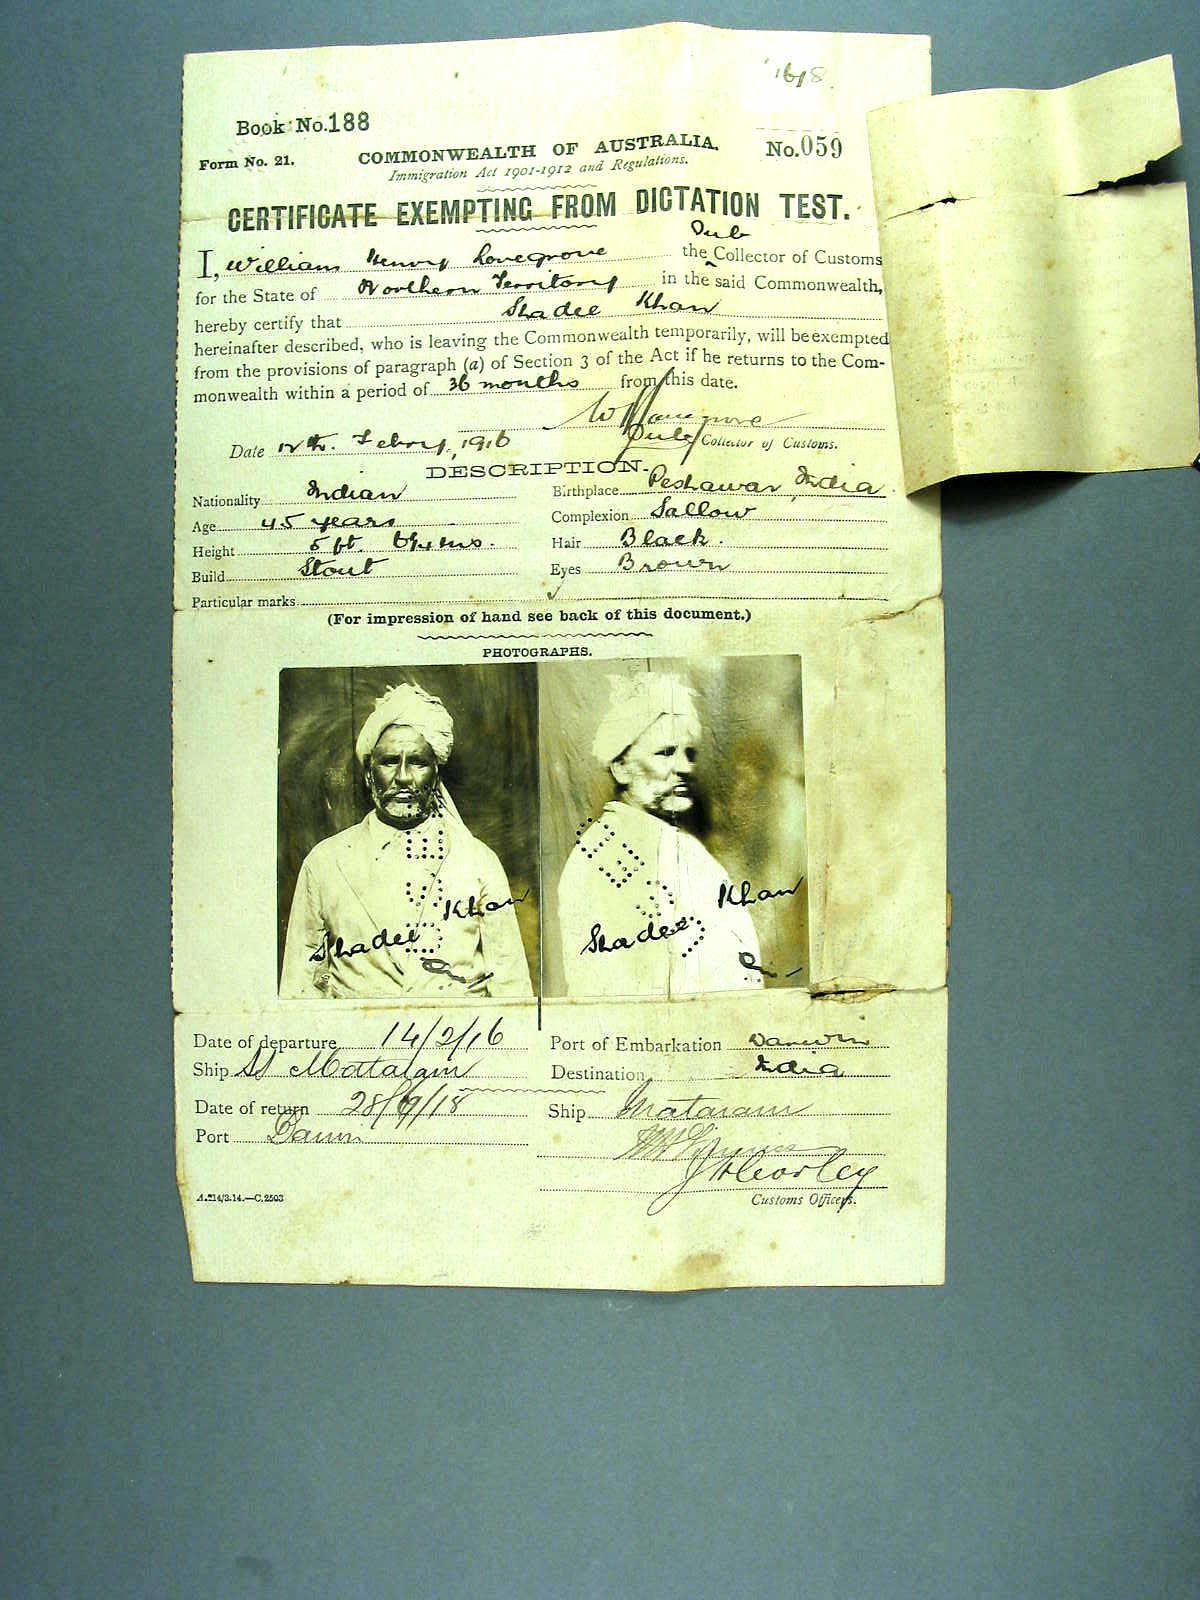 1618
Book No. 188
Form No. 21.
COMMONWEALTH OF AUSTRALIA.
No. 059
Immigration Act 1901-1912 and Regulations.
CERTIFICATE EXEMPTING FROM DICTATION TEST.
Sub
I, William Henry Lovegrove the Collector of Customs
for the State of Northern Territory in the said Commonwealth,
hereby certify that Shadee Khan
hereinafter described, who is leaving the Commonwealth temporarily, will be exempted
from the provisions of paragraph (a) of Section 3 of the Act if he returns to the Com-
monwealth within a period of 36 months from this date.
W H Lovegrove
Date 12th. Febry, 1916 Sub Collector of Customs.
DESCRIPTION.
Nationality Indian Birthplace Peshawar, India.
Age 45 years Complexion Sallow
Height 5 ft. ins. Hair Black.
Build Stout Eyes Brown
Particular marks
(For impression of hand see back of this document.)
PHOTOGRAPHS.
Shadee Khan
Shadee Khan
Date of departure 14/2/16 Port of Embarkation Darwin
Ship SS Mataram Destination India
Date of return 28/9/18 Ship Mataram
Port Darwin
Customs Officers.
A.214/3.14.—C.2503